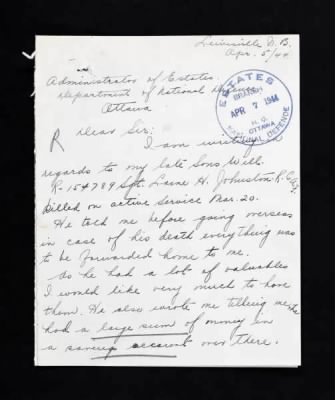 N.B.
Apr. 5/44
Administrator of Estates.
Department of National Defence
Ottawa
ESTATES
BRANCH
APR 7 1944
H.Q.
OTTAWA
NATIONAL DEFENCE
R
Dear Sir:
I am writing in
regards to my late Sons Will.
R-154789 Sgt. H. Johnston R.C.A.F.
killed on active Service Mar. 20.
He told me before going overseas
in case of his death everything was
to be forwarded home to me.
As he had a lot of valuables
I would like very much to have
them. He also wrote me telling me he
had a large sum of money in
a saving account over there.